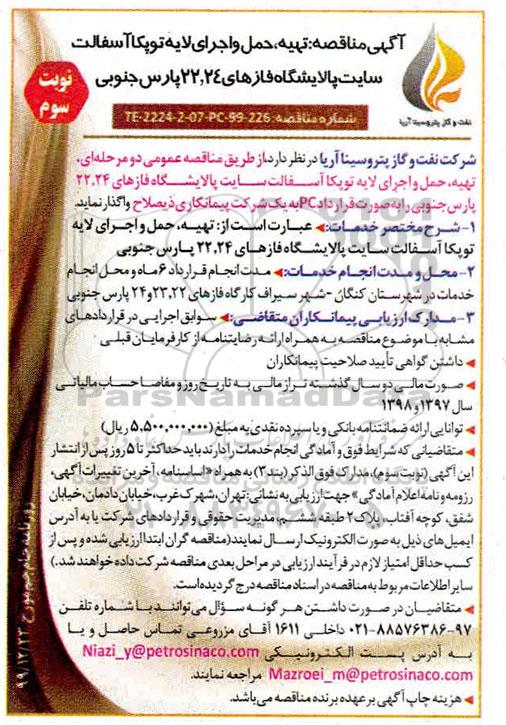 آگهی مناقصه: تهیه، حمل و اجرای لایه توپکا آسفالت
سایت پالایشگاه فازهای ۲۲,۲۴ پارس جنوبی
نوبت
سوم
نفت و گاز پتروسینا آریا
شماره مناقصه: TE-2224-2-07-PC-99-226
شرکت نفت و گاز پتروسینا آریا در نظر دارد، از طریق مناقصه عمومی دو مرحله‌ای،
تهیه، حمل و اجرای لایه توپکا آسفالت سایت پالایشگاه فازهای ۲۲,۲۴
پارس جنوبی را به صورت قرارداد PC به یک شرکت پیمانکاری ذیصلاح واگذار نماید.
۱- شرح مختصر خدمات: عبارت است از: تهیه، حمل و اجرای لایه
توپکا آسفالت سایت پالایشگاه فازهای ۲۲,۲۴ پارس جنوبی
۲- محل و مدت انجام خدمات: مدت انجام قرارداد ۶ ماه و محل انجام
خدمات در شهرستان کنگان - شهر سیراف کارگاه فازهای ۲۳,۲۲ و ۲۴ پارس جنوبی
۳- مدارک ارزیابی پیمانکاران متقاضی: سوابق اجرایی در قراردادهای
مشابه با موضوع مناقصه به همراه ارائه رضایتنامه از کارفرمایان قبلی
داشتن گواهی تأیید صلاحیت پیمانکاران
صورت مالی دو سال گذشته تراز مالی به تاریخ روز و مفاصا حساب مالیاتی
سال ۱۳۹۷ و ۱۳۹۸
توانایی ارائه ضمانتنامه بانکی و یا سپرده نقدی به مبلغ (۵,۵۰۰,۰۰۰,۰۰۰ ریال)
متقاضیانی که شرایط فوق و آمادگی انجام خدمات را دارند باید حداکثر تا ۵ روز پس از انتشار
این آگهی (نوبت سوم)، مدارک فوق الذکر (بند ۳) به همراه «اساسنامه، آخرین تغییرات آگهی،
رزومه و نامه اعلام آمادگی» جهت ارزیابی به نشانی: تهران، شهرک غرب، خیابان دادمان، خیابان
شفق، کوچه آفتاب، پلاک ۲ طبقه ششم، مدیریت حقوقی و قراردادهای شرکت یا به آدرس
ایمیل‌های ذیل به صورت الکترونیک ارسال نمایند (مناقصه گران ابتدا ارزیابی شده و پس از
کسب حداقل امتیاز لازم در فرآیند ارزیابی در مراحل بعدی مناقصه شرکت داده خواهند شد.)
سایر اطلاعات مربوط به مناقصه در اسناد مناقصه درج گردیده است.
متقاضیان در صورت داشتن هر گونه سؤال می‌توانند با شماره تلفن
۰۲۱-۸۸۵۷۶۳۸۶-۹۷ داخلی ۱۶۱۱ آقای مزروعی تماس حاصل و یا
به آدرس پست الکترونیکی Niazi_y@petrosinaco.com
Mazroei_m@petrosinaco.com مراجعه نمایند.
هزینه چاپ آگهی بر عهده برنده مناقصه می‌باشد.
روزنامه جام جم مورخ ۹۹/۱۲/۱۳
ParsNamadData